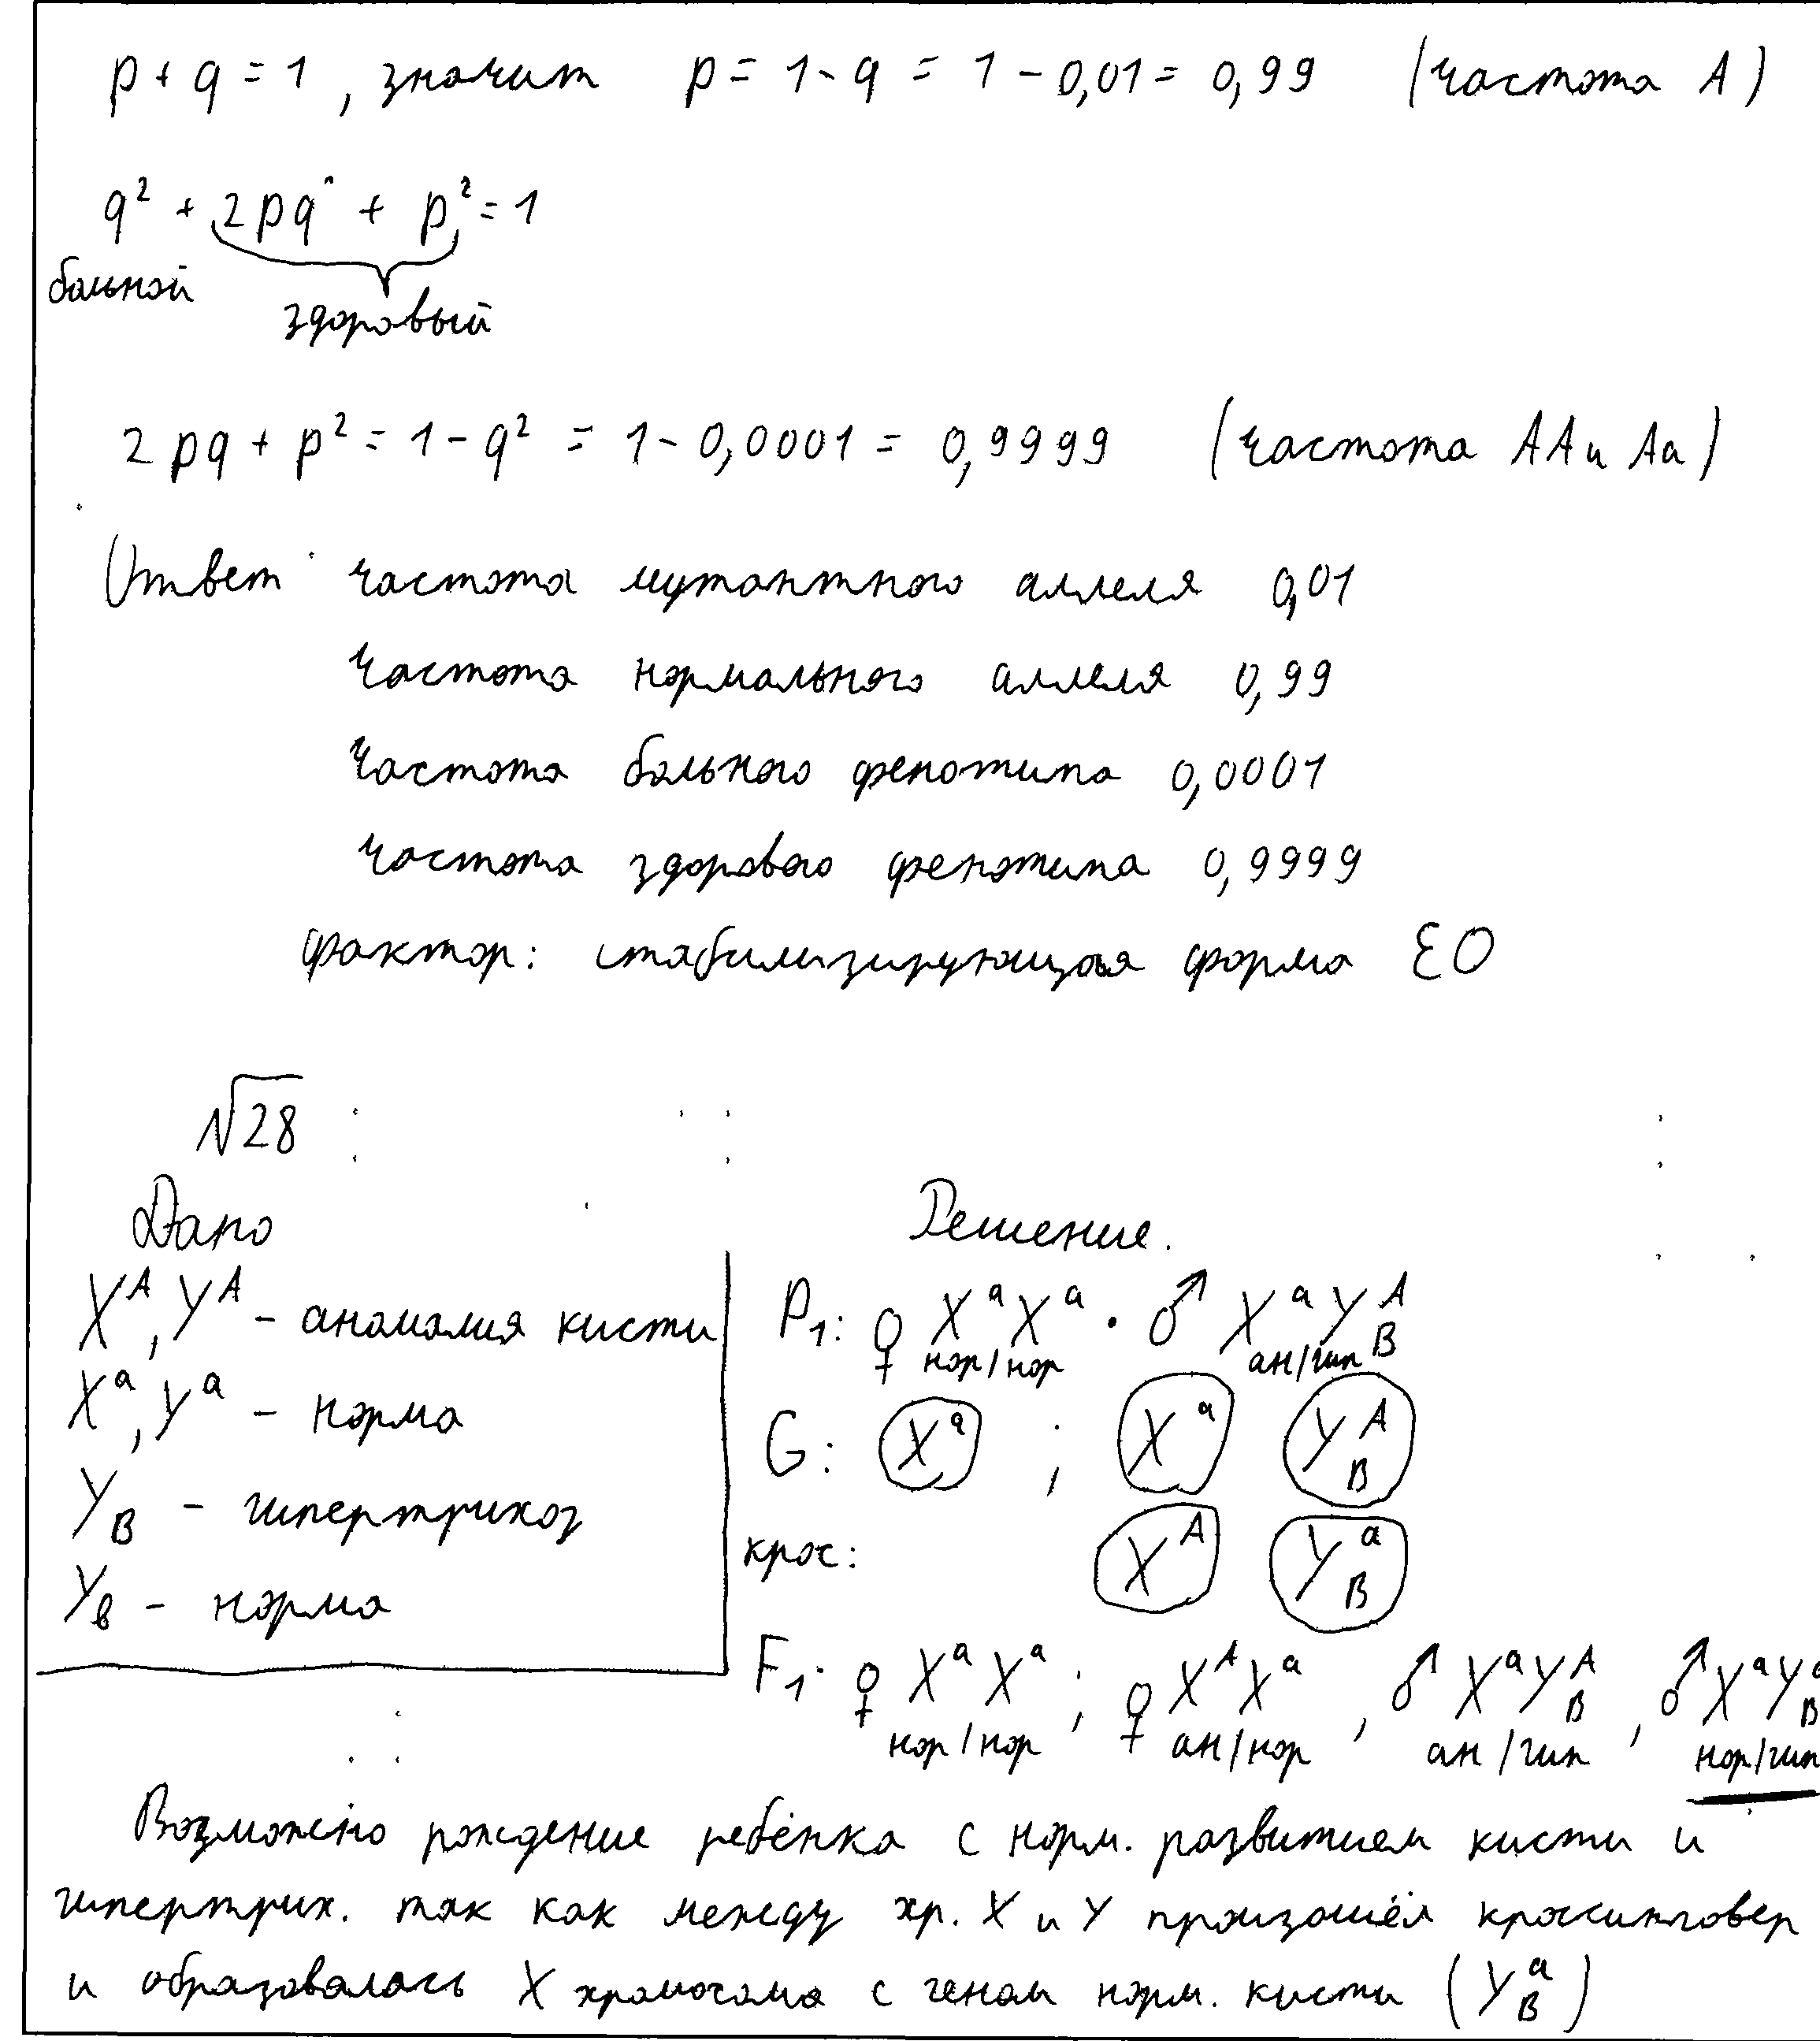 p + q = 1, значит p = 1 - q = 1 - 0,01 = 0,99 (частота А)
q² + 2pq + p² = 1
больной
здоровый
2pq + p² = 1 - q² = 1 - 0,0001 = 0,9999 (частота АА и Аа)
Ответ частота мутантного аллеля 0,01
Частота нормального аллеля 0,99
Частота больного фенотипа 0,0001
Частота здорового фенотипа 0,9999
фактор: стабилизирующая форма ЕО
№28
Дано
Решение.
X^A, Y^A - аномалия кисти
X^a, Y^a - норма
Y_B - гипертрихоз
Y_в - норма
P₁: ♀ X^a X^a · ♂ X^a Y^A_B
нор/нор ан/гип
G: X^a ; X^a Y^A_B
крос: X^A Y^a_B
F₁: ♀ X^a X^a ; ♀ X^A X^a , ♂ X^a Y^A_B , ♂ X^a Y^a_B
нор/нор ан/нор ан/гип нор/гип
Возможно рождение ребёнка с норм. развитием кисти и
гипертрих. так как между хр. X и Y произошёл кроссинговер
и образовалась X хромосома с геном норм. кисти (Y^a_B)